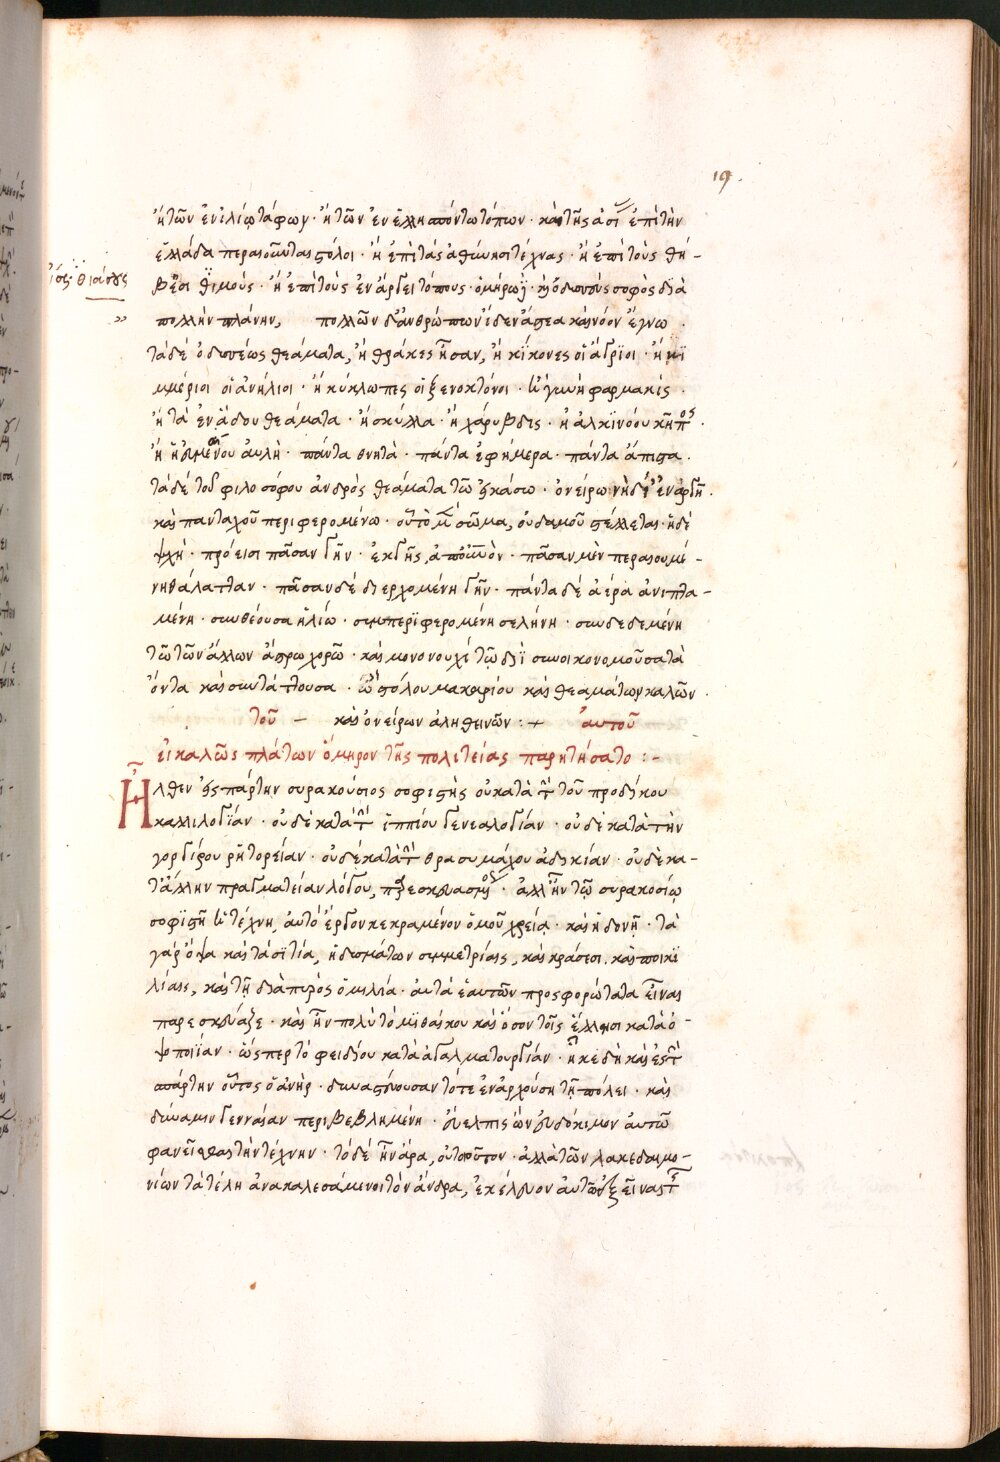 19.
ἢ τῶν ἐν ἰλίῳ τάφων · ἢ τῶν ἐν ἑλλησπόντω τόπων · καὶ τῆς ἀσί ἐπὶ τὴν
ἑλλάδα περαιοῦνται στόλοι · ἢ ἐπὶ τὰς ἀθήνησι τέχνας · ἢ ἐπὶ τοὺς θή-
ἴσως · θιάσους
βησι θϊμούς · ἢ ἐπὶ τοὺς ἐν ἄργει τόπους · ὁμήρωϊ · ἡ ὀδυσσεὺς σοφὸς διὰ
πολλὴν πλάνην, πολλῶν δ'ἀνθρώπων ἴδεν ἄστεα καὶ νόον ἔγνω ·
τὰ δὲ ὀδυσσέως θεάματα, ἢ θρᾶκες ἦσαν, ἢ κίκονες οἱ ἄγριοι · ἢ κϊ
μμέριοι οἱ ἀνήλιοι · ἢ κύκλωπες οἱ ξενοκτόνοι · ἢ γυνὴ φαρμακὶς ·
ἢ τὰ ἐν ἅδου θεάματα · ἢ σκύλλα · ἢ χάρυβδις · ἢ ἀλκϊνόου κῆπος ·
ἢ ἡ εὐμένου αὐλή · πάντα θνητὰ · πάντα ἐφήμερα · πάντα ἄπιστα ·
τὰ δὲ τοῦ φιλοσόφου ἀνδρὸς θεάματα τῶ εἰκάσω · ὀνείρω νὴ δί' ἐναργῆ ·
καὶ πανταχοῦ περιφερομένω · οὗ τὸ μὲν σῶμα, οὐδαμοῦ στέλλεται · ἡ δὲ
ψχὴ · πρόεισι πᾶσαν γῆν · ἐκ γῆς, ἐπ οὐνὸν · πᾶσαν μὲν περαιουμέ-
νη θάλατταν · πᾶσαν δὲ διερχομένη γῆν · πάντα δὲ ἀέρα ἀνιπτα-
μένη · συνθέουσα ἡλίω · συμπεριφερομένη σελήνη · συνδεδεμένη
τῶ τῶν ἄλλων ἄστρω χορῶ · καὶ μονονουχὶ τῷ διῒ συνοικονομοῦσα τὰ
ὄντα καὶ συντάττουσα · ὢ στόλου μακαρίου καὶ θεαμάτων καλῶν ·
τοῦ – καὶ ὀνείρων ἀληθινῶν : + αὐτοῦ
εἰ καλῶς πλάτων ὅμηρον τῆς πολιτείας παρῃτήσατο : -
Ἦλθεν εἰς σπάρτην συρακούσιος σοφιστὴς οὐ κατὰ τὴν τοῦ προδίκου
καλλιλογίαν · οὐδὲ κατὰ τὴν ἱππίου γενεαλογίαν · οὐδὲ κατὰ τὴν
γοργίου ῥητορείαν · οὐδὲ κατὰ τὴν θρασυμάχου ἀδικίαν · οὐδὲ κα-
τ' ἄλλην πραγματείαν λόγου, παρεσκευασμένος · ἀλλ' ἦν τῷ συρακοσίῳ
σοφϊστῆ ἡ τέχνη, αὐτὸ ἔργον κεκραμένον ὁμοῦ χρείᾳ · καὶ ἡδονῇ · τὰ
γὰρ ὄψα καὶ τὰ σϊτία, ἡδυσμάτων συμμετρίαις, καὶ κράσεσι, καὶ ποικι
λίαις, καὶ τῇ διὰ πυρὸς ὁμιλίᾳ · αὐτὰ ἑαυτῶν προσφορώτατα εἶναι
παρεσκεύαζε · καὶ ἦν πολὺ τὸ μϊθαίκου καὶ ὅσον τοῖς ἕλλησι κατὰ ὀ-
ψοποιΐαν · ὥσπερ τὸ φειδίου κατὰ ἀγαλματουργίαν · ἧκε δὴ καὶ ἐς τὴν
σπάρτην οὗτος ὁ ἀνὴρ · δυναστεύουσαν τότε ἐν ἀρχούσῃ τῇ πόλει · καὶ
δύναμιν γενναίαν περιβεβλημένη · εὔελπις ὢν εὐδόκιμον αὐτῶ
φανεῖσθαι τὴν τέχνην · τὸ δὲ ἦν ἄρα, οὐ τοιοῦτον · ἀλλὰ τῶν λακεδαιμο-
νίων τὰ τέλη ἀνακαλεσάμενοι τὸν ἄνδρα, ἐκέλευον αὐτῶ ἐξεῖναι τῆς